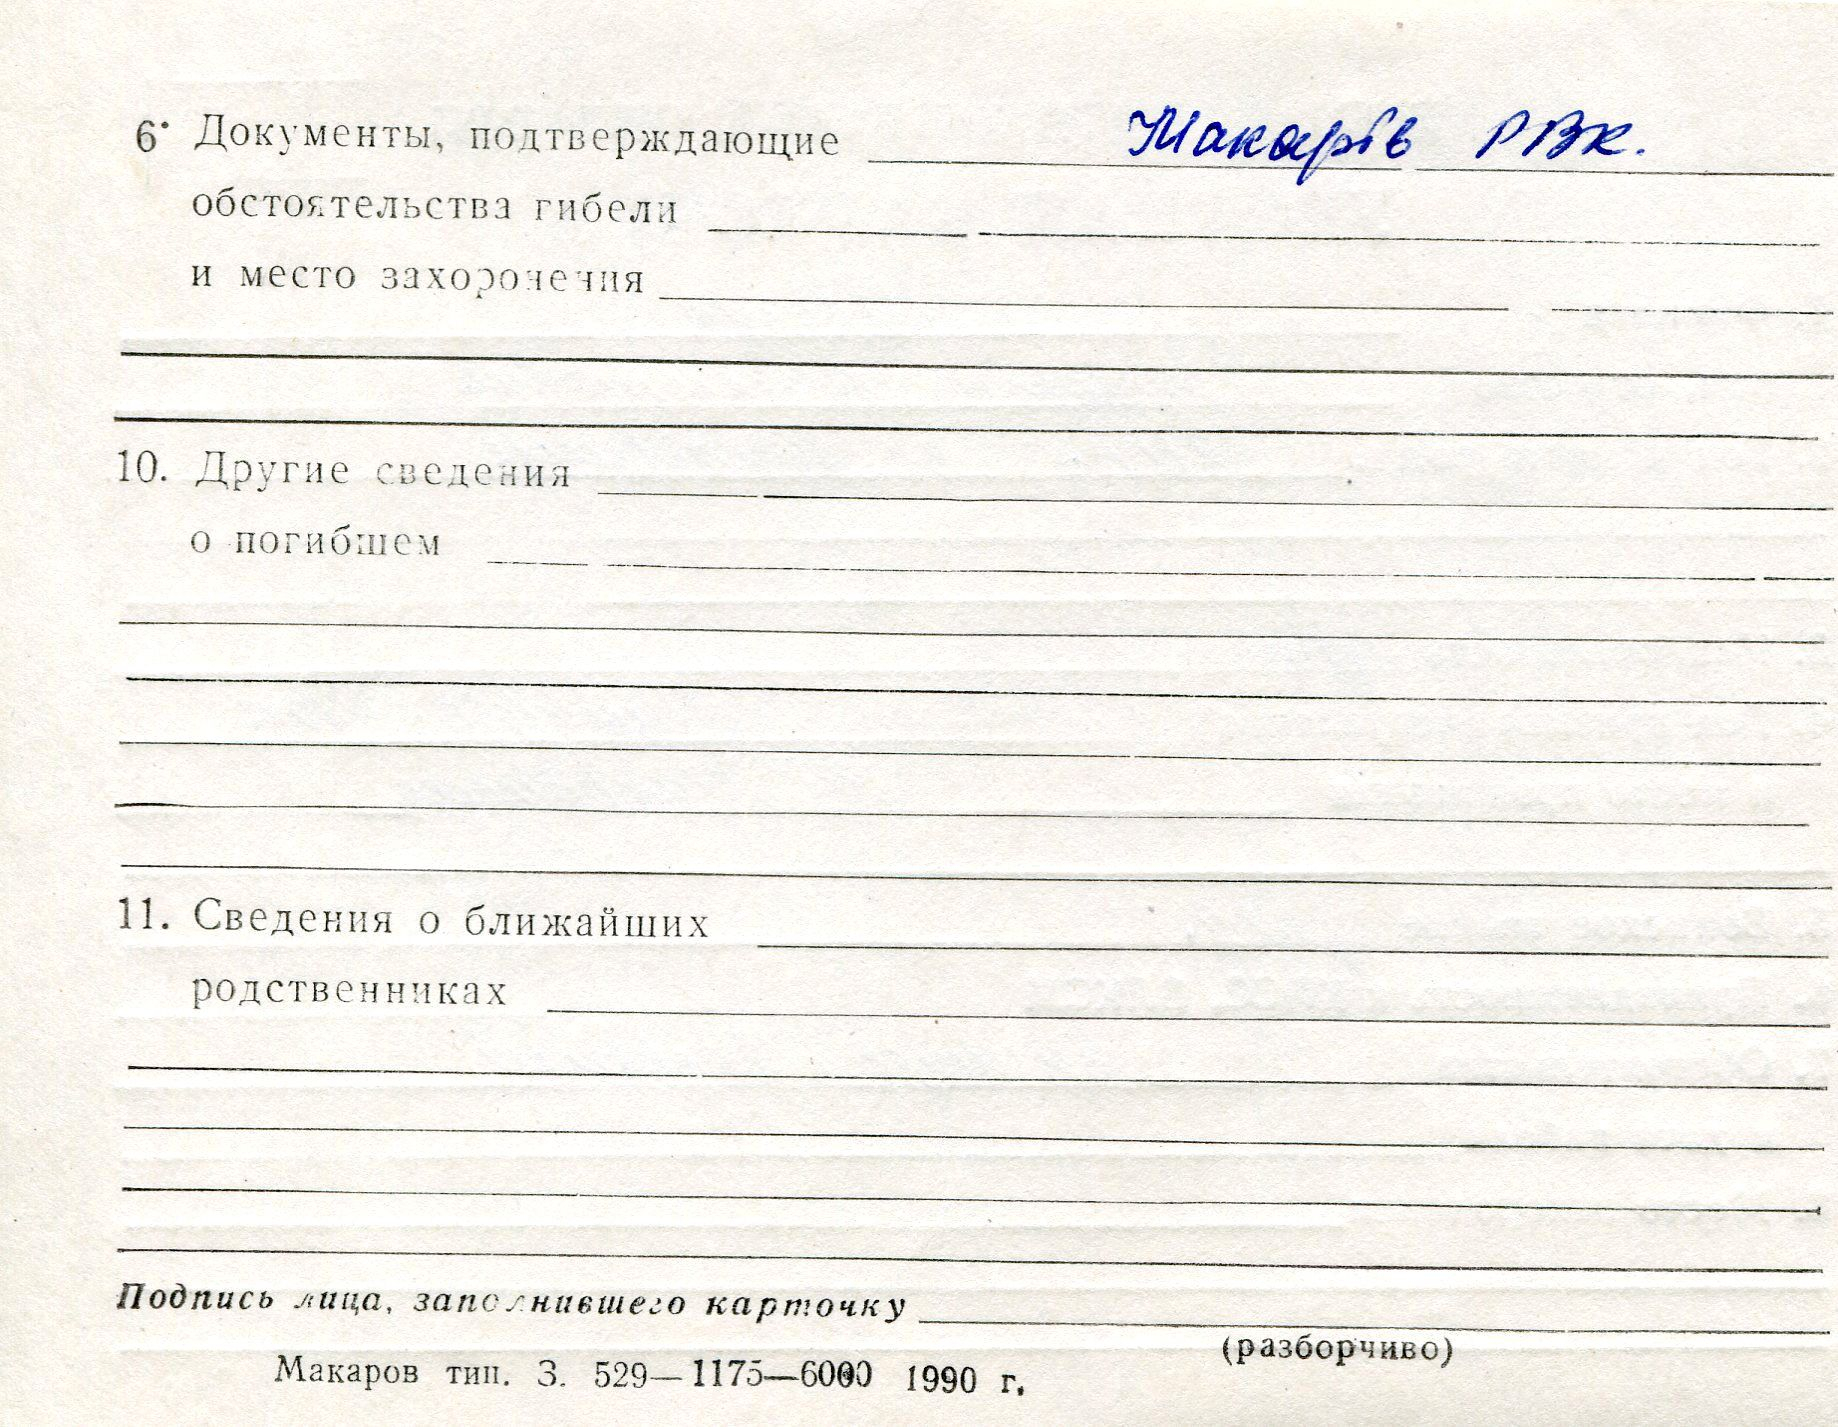 6. Документы, подтверждающие Макарів РВК.
обстоятельства гибели
и место захоронения
10. Другие сведения
о погибшем
11. Сведения о ближайших
родственниках
Подпись лица, заполнившего карточку
(разборчиво)
Макаров тип. З. 529—1175—6000 1990 г.